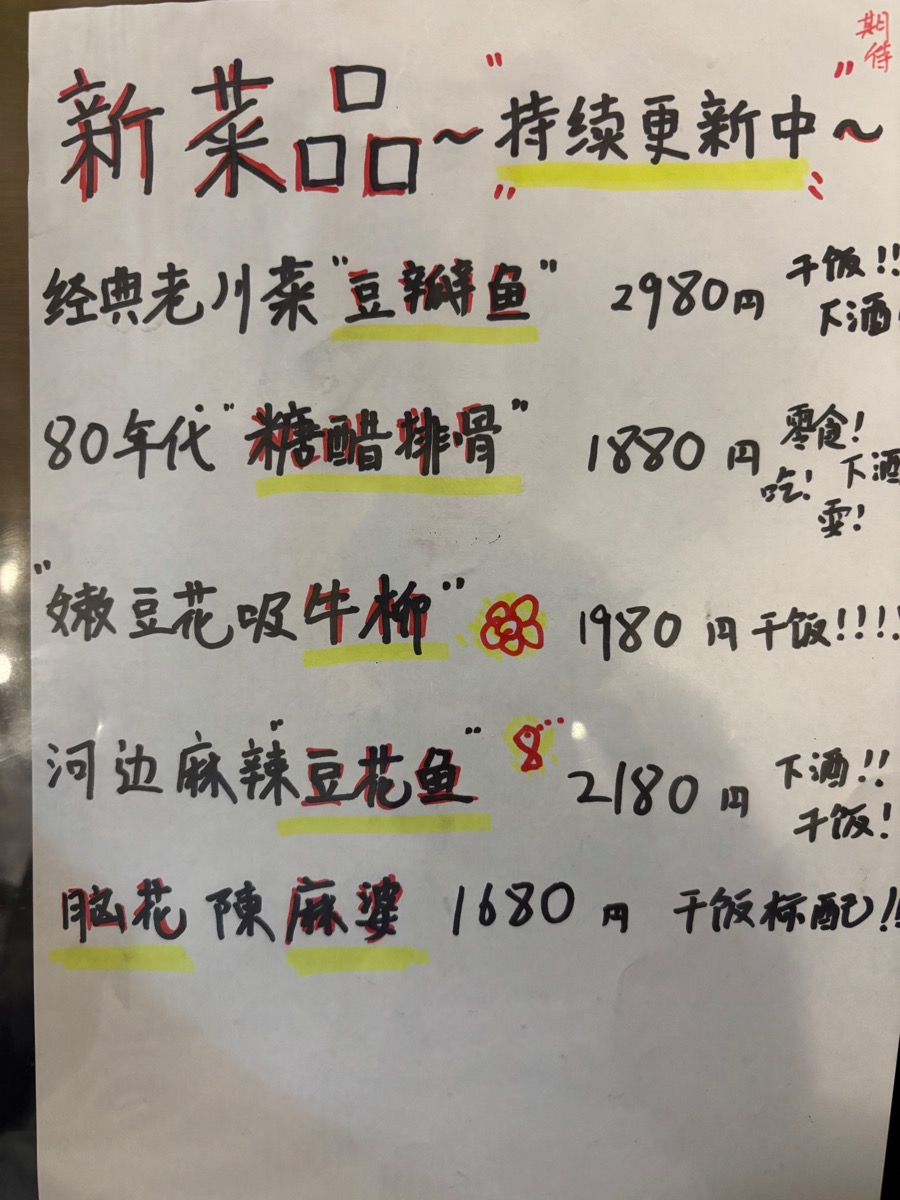 期待
新菜品~"持续更新中"~
经典老川菜"豆瓣鱼" 2980円 干饭!! 下酒!
80年代"糖醋排骨" 1880円 零食! 吃! 下酒 耍!
"嫩豆花吸牛柳" 1980円 干饭!!!!
河边麻辣"豆花鱼" 2180円 下酒!! 干饭!
脑花陳麻婆 1680円 干饭标配!!